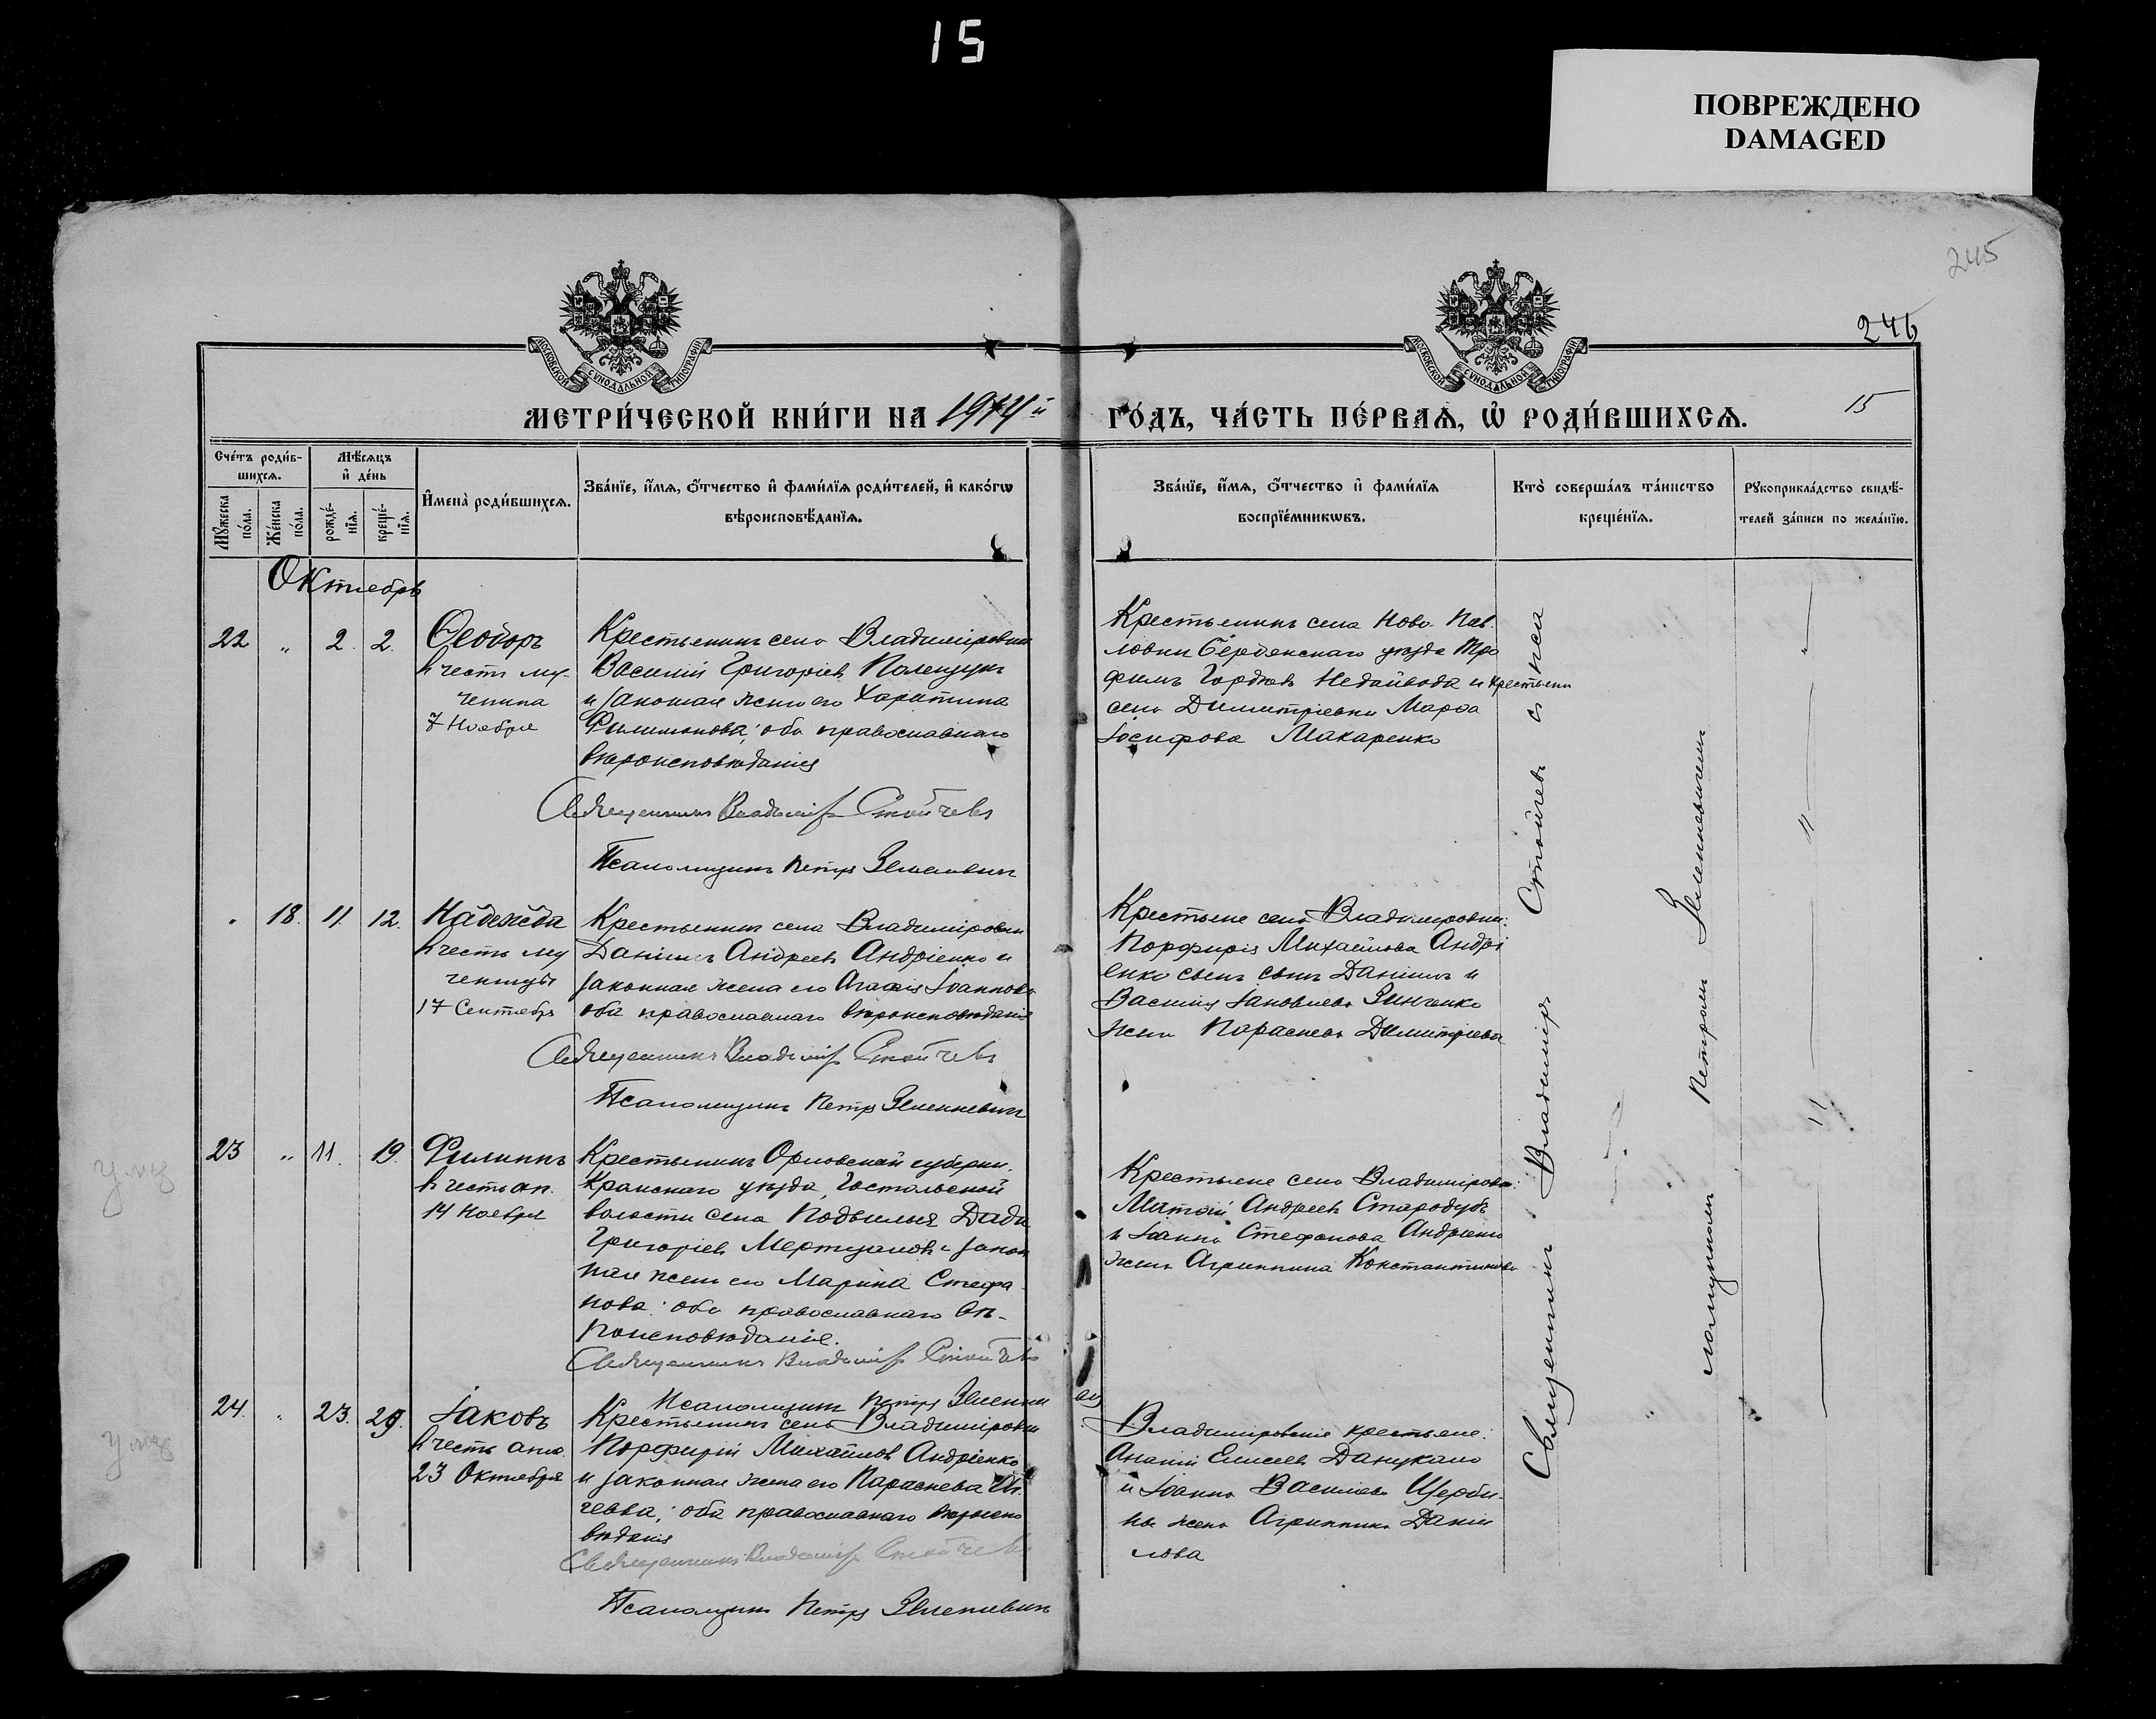 15
ПОВРЕЖДЕНО
DAMAGED
245
246
МОСКОВСКОЙ СУНОДАЛЬНОЙ ТИПОГРАФІИ
МОСКОВСКОЙ СУНОДАЛЬНОЙ ТИПОГРАФІИ
МЕТРИ́ЧЕСКОЙ КНИ́ГИ НА
ГО́ДЪ, ЧА́СТЬ ПЕ́РВАѦ, Ѡ҆ РОДИ́ВШИХСѦ.
15
Счѐтъ роди́в-
шихсѧ.
Мѣ́сѧцъ
и҆ де́нь
Мꙋ́жеска по́ла.
Же́нска по́ла.
рожде́-нїѧ.
креще́-нїѧ.
И҆мена̀ роди́вшихсѧ.
Зва́нїе, и҆́мѧ, ѻ҆́тчество и҆ фами́лїѧ роди́телей, и҆ како́гѡ
вѣроисповѣ́данїѧ.
Зва́нїе, и҆́мѧ, ѻ҆́тчество и҆ фами́лїѧ
воспрїе́мникѡвъ.
Кто̀ соверша́лъ та́инство
креще́нїѧ.
Рꙋкоприкла́дство свидѣ́-
телей за́писи по жела́нїю.
Октябрь
22 „ 2. 2.
Ѳеодоръ
в честь му-
ченика
7 Ноября
Крестьянинъ села Владиміровки
Василій Григоріевъ Полещукъ
и законная жена его Харитина
Филимонова; оба православнаго
вѣроисповѣданія
Священникъ Владиміръ Стойчевъ
Псаломщикъ Петръ Зеленкевичъ
Крестьянинъ села Ново Пав
ловки Бердянскаго уѣзда Тро
фимъ Гордѣевъ Недайвода и крестьянка
села Димитріевки Марѳа
Іосифова Макаренко
„ 18. 11. 12.
Надежда
в честь му
ченицы
17 Сентября
Крестьянинъ села Владиміровки
Даніилъ Андреевъ Андріенко и
законная жена его Агаѳія Іоаннова
оба православнаго вѣроисповѣданія
Священникъ Владиміръ Стойчевъ
Псаломщикъ Петръ Зеленкевичъ
Крестьяне села Владиміровки:
Порфирія Михайлова Андрі
енко сынъ Даніилъ и
Василія Іаковлева Зинченко
жена Параскева Димитріева
23 „ 11. 19.
Филиппъ
в честь ап.
14 Ноября
Крестьянинъ Орловской губерніи.
Кромскаго уѣзда, Гостомльской
волости села
Григоріевъ и закон
ная жена его Марина Стефа
нова: оба православнаго вѣ-
роисповѣданія.
Священникъ Владиміръ Стойчевъ
Псаломщикъ Петръ Зеленкевичъ
Крестьяне села Владиміровки:
Матѳій Андреевъ Стародубъ
и Іоанна Стефанова Андріенко
жена Агриппина Константинова
24. „ 23. 29.
Іаковъ
в честь апос.
23 Октября
Крестьянинъ села Владиміровки
Порфирій Михайловъ Андріенко
и законная жена его Параскева
оба православнаго вѣроиспо
вѣданія
Священникъ Владиміръ Стойчевъ
Псаломщикъ Петръ Зеленкевичъ
Владиміровскіе крестьяне:
Ананій Елисеевъ
и Іоанна Васильева Щерби-
ны жена Агриппина Даніи
лова
Священникъ Владиміръ Стойчевъ
Петромъ Зеленкевичемъ